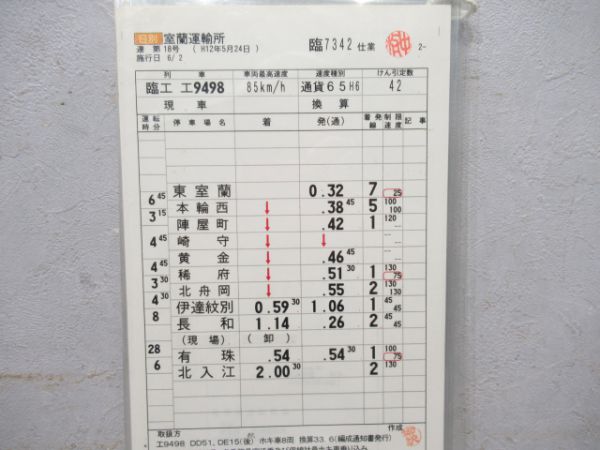 日別 室蘭運輸所
運 第 18号 ( H12年5月24日 ) 臨7342 仕業 2-
施行日 6/ 2
列 車 車両最高速度 速度種別 けん引定数
臨工 工9498 85km/h 通貨65H6 42
現 車 換 算
運転時分 停車場名 着 発(通) 着発線 制限速度 記事
東室蘭 0.32 7 25
6 45
本輪西 ↓ .38 45 5 100 100
3 15
陣屋町 ↓ .42 1 120 …
崎守 ↓ ↓ … …
4 45
黄金 ↓ .46 45 …
4 45
稀府 ↓ .51 30 1 130 75
3 30
北舟岡 ↓ .55 2 130 130
4 30
伊達紋別 0.59 30 1.06 1 45 45
8
長和 1.14 .26 2 45 45
(現場) (卸)
28
有珠 .54 .54 30 1 100 75
6
北入江 2.00 30 2 130
取扱方 作成
工9498 DD51, DE15(後) ホキ車8両 換算33.6(編成通知書発行)